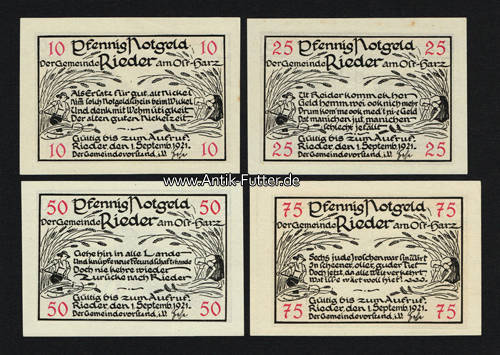 10 Pfennig Notgeld 10
Der Gemeinde Rieder am Ost-Harz
Als Ersatz für gut, alt Nickel
Nim solch Notgeldschein beim Wickel
Und denk mit Wehmütigkeit
Der alten guten Nickelzeit
Gültig bis zum Aufruf.
Rieder, den 1. Septemb. 1921.
10 Der Gemeindevorstand, i.V. 10
25 Pfennig Notgeld 25
Der Gemeinde Rieder am Ost-Harz
Ut Reider kom ek her
Geld hemm, wei ook nich mehr
Drum kom me ook med
Dat manichen jut, manichen
schlecht jefallt
Gültig bis zum Aufruf.
Rieder, den 1. Septemb. 1921.
25 Der Gemeindevorstand, i.V. 25
www.Antik-Futter.de
50 Pfennig Notgeld 50
Der Gemeinde Rieder am Ost-Harz
Gehe hin in alle Lande
Und knüpfe neue Freundschaftsbande
Doch nie kehre wieder
Zurücke nach Rieder
Gültig bis zum Aufruf.
Rieder, den 1. Septemb. 1921.
50 Der Gemeindevorstand, i.V. 50
75 Pfennig Notgeld 75
Der Gemeinde Rieder am Ost-Harz
Sechs jude Jroschen war
In scheener, oller, guder Tiet
Doch jetzt, da alle Welt verkehrt
Wat
Gültig bis zum Aufruf.
Rieder, den 1. Septemb. 1921.
75 Der Gemeindevorstand, i.V. 75